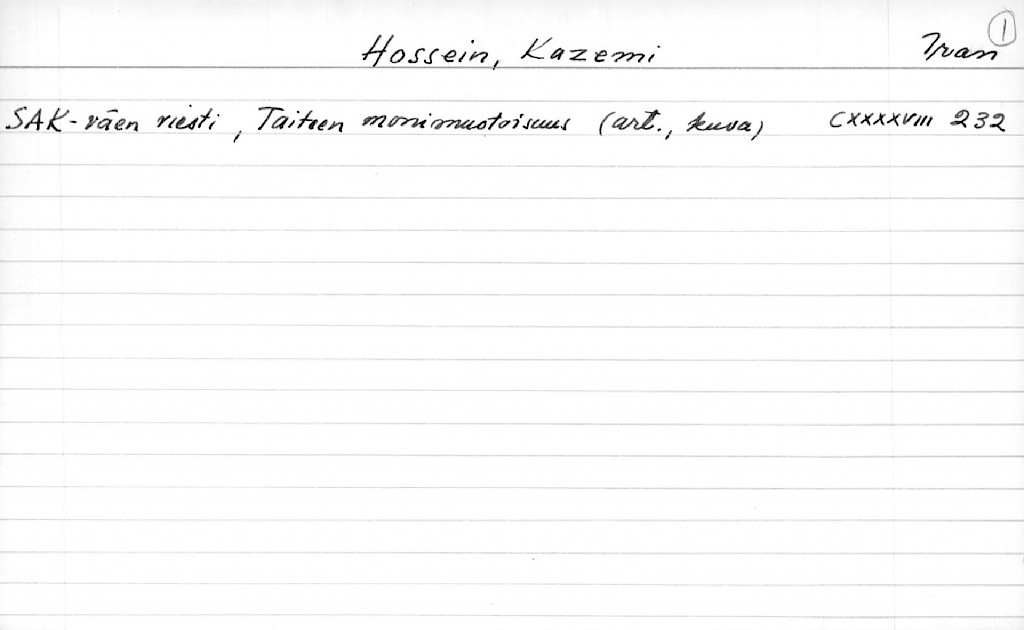 Hossein, Kazemi Iran 1
SAK-väen viesti, Taiteen monimuotoisuus (art., kuva) CXXXXVIII 232